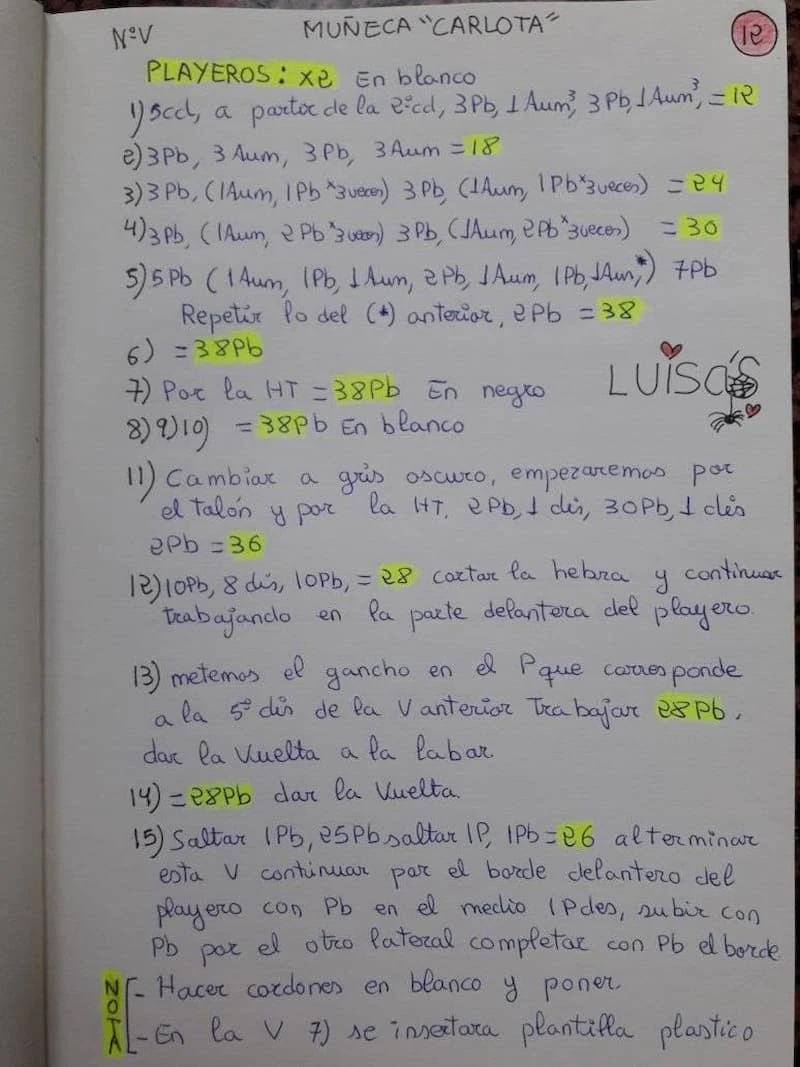 NºV
MUÑECA "CARLOTA"
12
PLAYEROS: x2 En blanco
1) 5cd, a partir de la 2ºcd, 3Pb, 1Aum³, 3Pb, 1Aum³, = 12
2) 3Pb, 3 Aum, 3Pb, 3Aum = 18
3) 3Pb, (1Aum, 1Pb x3veces) 3Pb, (1Aum, 1Pb x3veces) = 24
4) 3Pb, (1Aum, 2Pb x3veces) 3Pb, (1Aum, 2Pb x3veces) = 30
5) 5Pb (1Aum, 1Pb, 1Aum, 2Pb, 1Aum, 1Pb, 1Aum,*) 7Pb
Repetir lo del (*) anterior, 2Pb = 38
6) = 38Pb
7) Por la HT = 38Pb En negro
LUISa'S
8) 9) 10) = 38Pb En blanco
11) Cambiar a gris oscuro, empezaremos por
el talón y por la HT. 2Pb, 1 dis, 30Pb, 1 dis
2Pb = 36
12) 10Pb, 8 dis, 10Pb, = 28 cortar la hebra y continuar
trabajando en la parte delantera del playero.
13) metemos el gancho en el P que corresponde
a la 5º dis de la V anterior Trabajar 28Pb,
dar la Vuelta a la labar.
14) = 28Pb dar la Vuelta.
15) Saltar 1Pb, 25Pb saltar 1P, 1Pb = 26 al terminar
esta V continuar por el borde delantero del
playero con Pb en el medio 1Pdes, subir con
Pb por el otro lateral completar con Pb el borde
NOTA
- Hacer cordones en blanco y poner.
- En la V 7) se insertara plantilla plastico